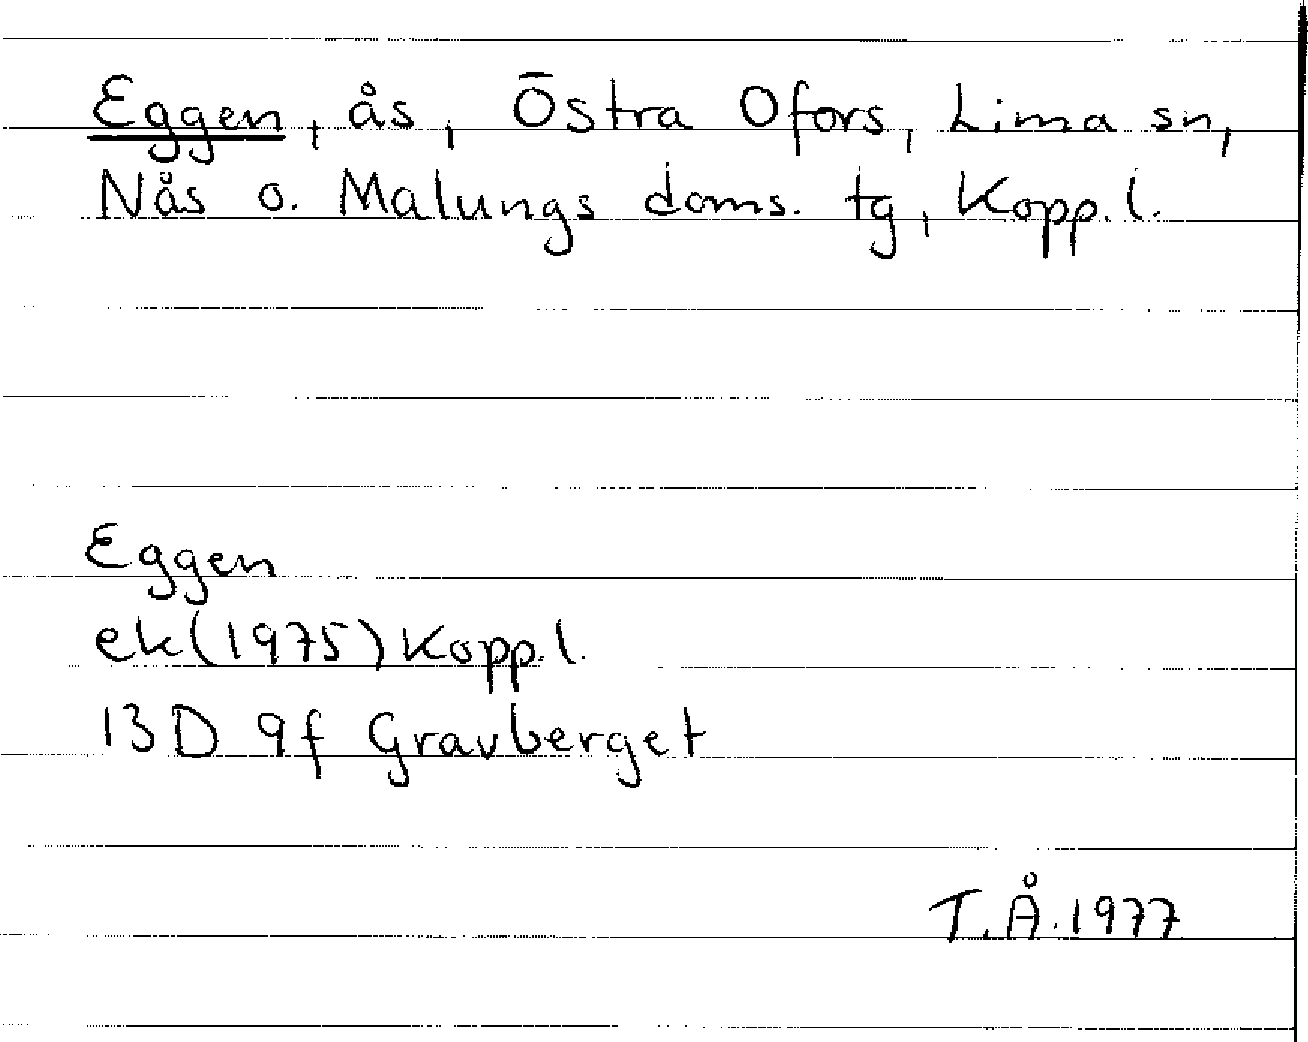 Eggen, ås, Östra Ofors, Lima sn,
Nås o. Malungs doms. tg, Kopp. l.
Eggen
ek (1975) Kopp. l.
13D 9f Gravberget
T.Å. 1977